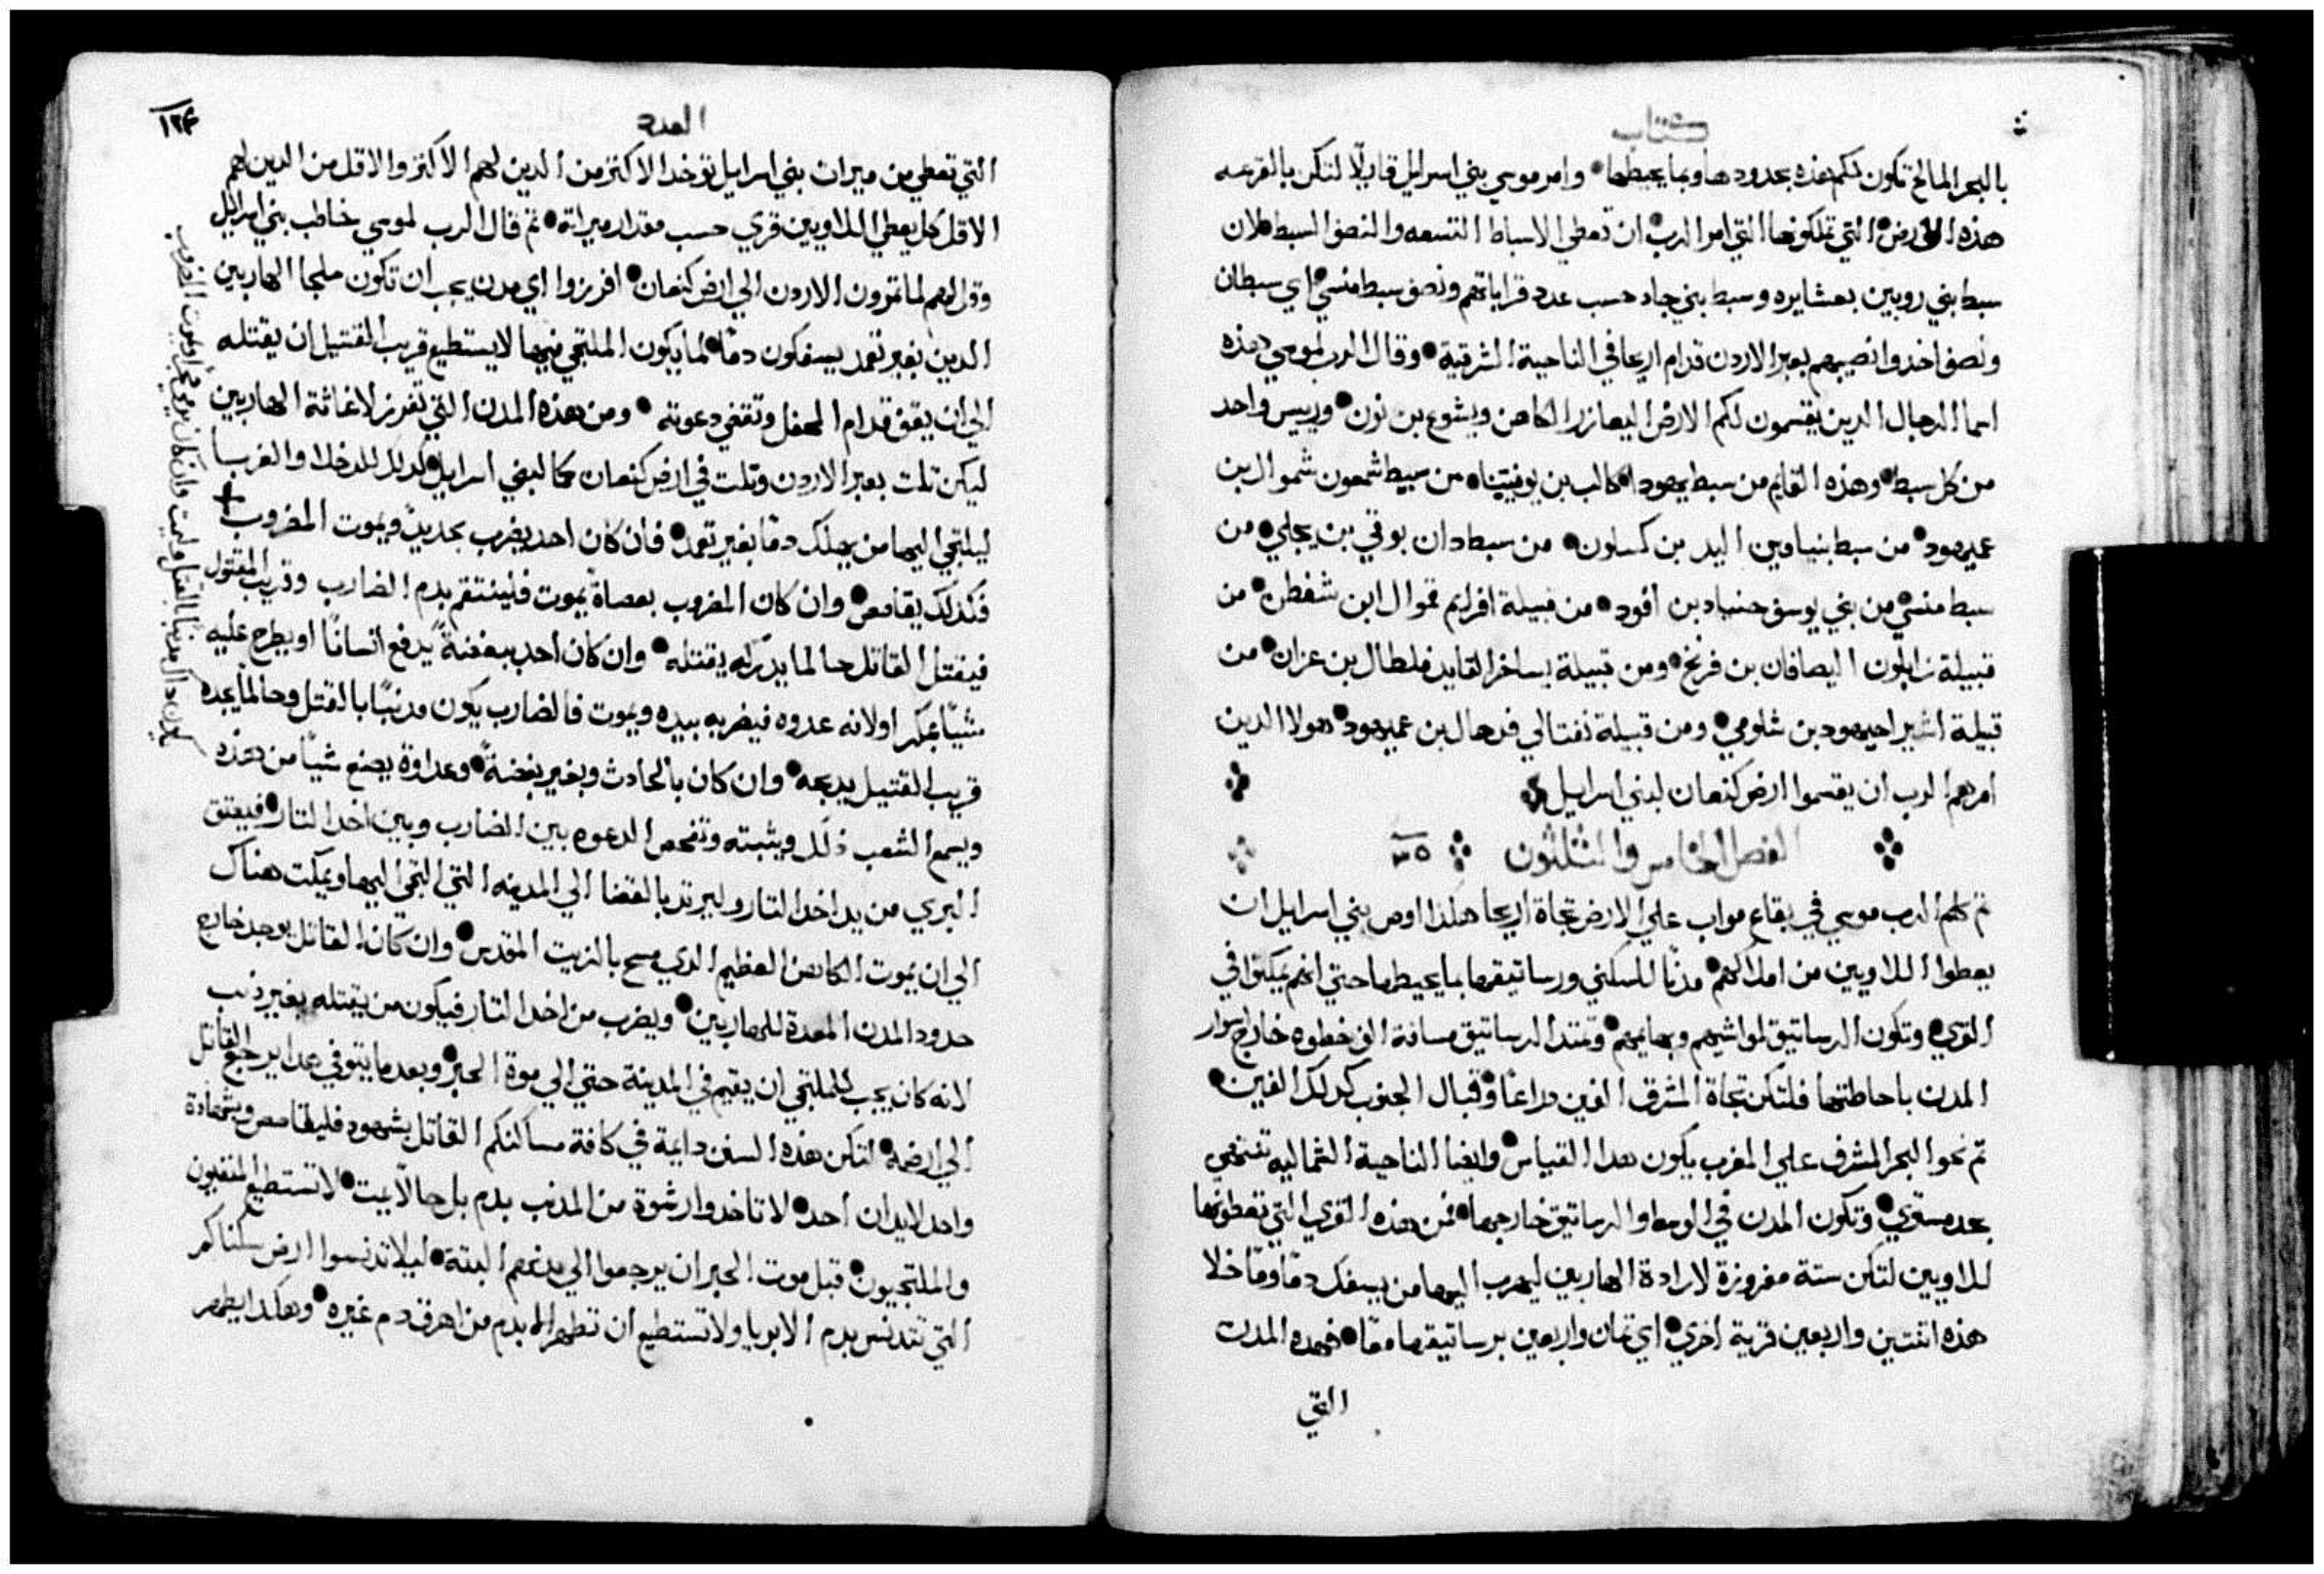 كتاب
بالبحر المالح تكون لكم هذه بحدودها وبما يحيطها وامر موسي بني اسرايل قايلًا لتكن بالقرعه
هذه الارض التي تملكونها التي امر الرب ان تعطي الاسباط التسعه والنصف السبط لان
سبط بني روبين بعشايره وسبط بني جاد حسب عدد قراباتهم ونصف سبط منسي اي سبطان
ونصف اخدوا نصيبهم بعبر الاردن قدام اريحا في الناحية الشرقية وقال الرب لموسي هذه
اسما الرجال الدين يقسمون لكم الارض اليعازر الكاهن ويشوع بن نون ورييس واحد
من كل سبط وهذه القايم من سبط يهودا كالب بن يوفنيا من سبط شمعون شموال بن
عميهود من سبط بنيامين اليد بن كسلون من سبط دان بوقي بن يجلي من
سبط منسي من بني يوسف حنياد بن افود من قبيلة افرايم قموال ابن شفطن من
قبيلة زابلون اليصافان بن فرنخ ومن قبيلة يساخر القايد فلطال بن عزان من
قبيلة اشير احيهود بن شلومي ومن قبيلة نفتالي فدهال بن عميهود هولا الدين
امرهم الرب ان يقسموا ارض كنعان لبني اسرايل
الفصل الخامس والثلثون ٣٥
تم كلم الرب موسي في بقاع مواب علي الارض تجاة اريحا هكذا اوص بني اسرايل ان
يعطوا اللاويين من املاكهم مدنًا للسكني ورساتيقها بما يحيطها حتي انهم يمكتوا في
القري وتكون الرساتيق لمواشيهم وبهايمهم وتمتد الرساتيق مسافة الف خطوه خارج اسوار
المدن باحاطتها فلتكن تجاة المشرق الفين دراعًا وقبال الجنوب كدلك الفين
تم نحوا البحر المشرف علي المغرب يكون هدا القياس وايضا الناحية الشماليه تنتهي
بحد مستوي وتكون المدن في الوسط والرساتيق خارجها فمن هذه القري التي تعطونها
للاويين لتكن ستة مفروزة لارادة الهاربين ليهرب اليها من يسفك دمًا وما خلا
هذه اتنتين واربعين قرية اخري اي تمان واربعين برساتيقها معًا فهده المدن
التي
العدد
١٢٤
التي تعطي من ميرات بني اسرايل توخد الاكتر من الدين لهم الاكتر والاقل من الدين لهم
الاقل كل يعطي اللاويين قري حسب مقدار ميراته تم قال الرب لموسي خاطب بني اسرايل
وقل لهم لما تمرون الاردن الي ارض كنعان افرزوا اي مدن يجب ان تكون ملجا الهاربين
الدين بغير تعمد يسفكون دمًا لما يكون الملتجي فيها لا يستطيع قريب القتيل ان يقتله
الي ان يقف قدام المحفل وتقضي دعوته ومن هذه المدن التي تفرز لاغاثة الهاربين
ليكن تلت بعبر الاردن وتلت في ارض كنعان كما لبني اسرايل كدلك للدخلا والغربا
ليلتجي اليها من يهلك دمًا بغير تعمد فان كان احد يضرب بحديد ويموت المضروب
فكدلك يقاصص وان كان المضروب بعصاة يموت فلينتقم بدم الضارب وقريب المقتول
فيقتل القاتل حالما يدركه يقتله وان كان احد ببغضة يدفع انسانًا او يطرح عليه
شيئًا بمكر او لانه عدوه فيضربه بيده ويموت فالضارب يكون مدنبًا بالقتل وحالما يجده
قريب القتيل يدبحه وان كان بالحادث وبغير بغضة وعداوة يصنع شيًا من هذه
ويسمع الشعب ذلك ويثبته وتفحص الدعوه بين الضارب وبين اخد التار فيعتق
البري من يد اخد التار وليرتد بالقضا الي المدينه التي التجي اليها ويمكت هناك
الي ان يموت الكاهن العظيم الدي مسح بالزيت المقدس وان كان القاتل يوجد خارج
حدود المدن المعدة للهاربين ويضرب من اخد التار فيكون من يقتله بغير ذنب
لانه كان يجب للملتجي ان يقيم في المدينة حتي الي موة الحبر وبعد ما يتوفي هدا يرجع القاتل
الي ارضه لتكن هذه السنن دايمة في كافة مساكنكم القاتل بشهود فليقاصص وبشهادة
واحد لا يدان احد لا تاخدوا رشوة من المدنب بدم بل حالًا يميت لا تستطيع المنفيون
والملتجيون قبل موت الحبر ان يرجعوا الي مدنهم البتة ليلا تدنسوا ارض سكناكم
التي تتدنس بدم الابريا ولا تستطيع ان تطهر الا بدم من اهرق دم غيره وهكدا يطهر
وان كان يرمي حجرًا ويموت المضروب